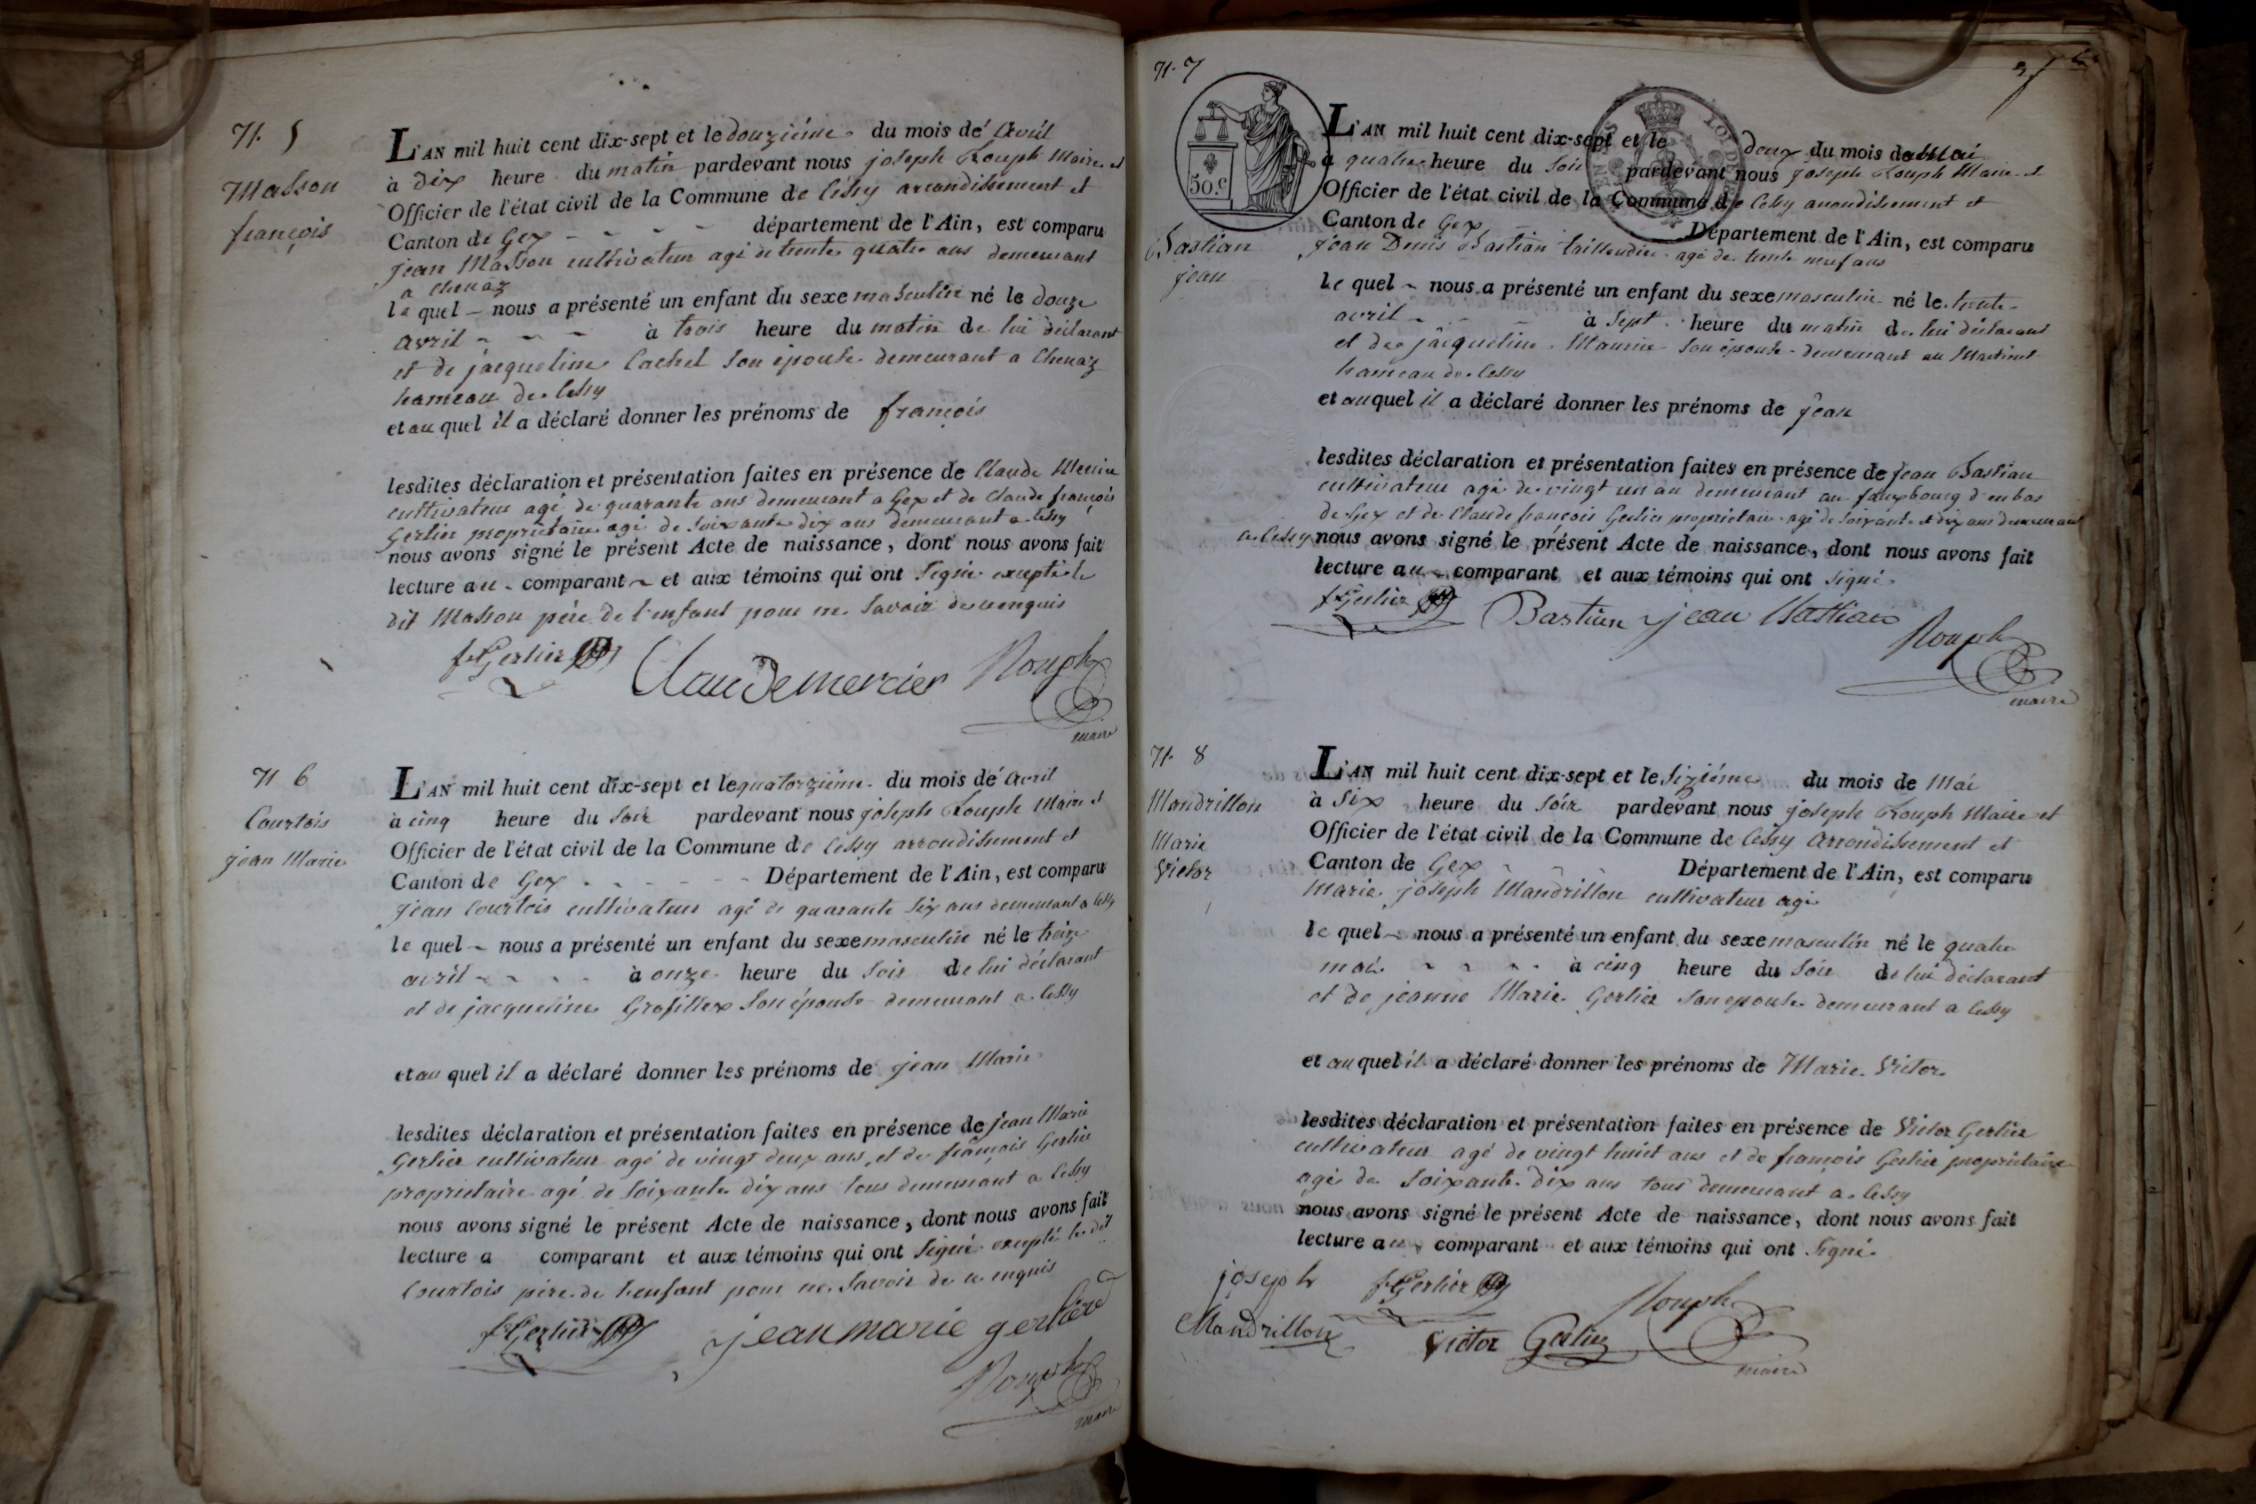 N. 5
Masson
françois
L'AN mil huit cent dix-sept et le douzième du mois de Avril
à dix heure du matin pardevant nous joseph Rouph Maire et
Officier de l'état civil de la Commune de Cessy arrondissement et
Canton de Gex - - - - département de l'Ain, est comparu
jean Masson cultivateur agé de trente quatre ans demeurant
a Chenaz
le quel - nous a présenté un enfant du sexe masculin né le douze
avril - - - à trois heure du matin de lui déclarant
et de jacqueline Cachet son épouse demeurant a Chenaz
hameau de Cessy
et au quel il a déclaré donner les prénoms de françois
lesdites déclaration et présentation faites en présence de Claude Mercier
cultivateur agé de quarante ans demeurant a Gex et de Claude françois
Gerlier propriétaire agé de soixante dix ans demeurant a Cessy
nous avons signé le présent Acte de naissance, dont nous avons fait
lecture au - comparant - et aux témoins qui ont signé excepté le
dit Masson père de l'enfant pour ne savoir de ce enquis
f Gerlier Claude mercier Rouph
maire
N. 6
Courtois
jean Marie
L'AN mil huit cent dix-sept et le quatorzième du mois de avril
à cinq heure du soir pardevant nous joseph Rouph Maire et
Officier de l'état civil de la Commune de Cessy arrondissement et
Canton de Gex - - - - - Département de l'Ain, est comparu
jean Courtois cultivateur agé de quarante six ans demeurant a Cessy
le quel - nous a présenté un enfant du sexe masculin né le treize
avril - - - - à onze heure du soir de lui déclarant
et de jacqueline Grosfillex son épouse demeurant a Cessy
et au quel il a déclaré donner les prénoms de jean Marie
lesdites déclaration et présentation faites en présence de jean Marie
Gerlier cultivateur agé de vingt deux ans et de françois Gerlier
propriétaire agé de soixante dix ans tous demeurant a Cessy
nous avons signé le présent Acte de naissance, dont nous avons fait
lecture a comparant et aux témoins qui ont signé excepté le dit
Courtois père de l'enfant pour ne savoir de ce enquis
f Gerlier jean marie gerlier
Rouph
maire
N. 7
50.c
Bastian
jean
L'AN mil huit cent dix-sept et le deux du mois de Mai
à quatre heure du soir pardevant nous joseph Rouph Maire et
Officier de l'état civil de la Commune de Cessy arrondissement et
Canton de Gex - Département de l'Ain, est comparu
jean Denis Bastian taillandier agé de trente neuf ans
le quel - nous a présenté un enfant du sexe masculin né le trente
avril - - - à sept heure du matin de lui déclarant
et de jacqueline Mounier son épouse demeurant au Martinet
hameau de Cessy
et au quel il a déclaré donner les prénoms de jean
lesdites déclaration et présentation faites en présence de jean Bastian
cultivateur agé de vingt un an demeurant au fauxbourg d'en bas
de Gex et de Claude françois Gerlier propriétaire agé de soixante et dix ans demeurant
a Cessy nous avons signé le présent Acte de naissance, dont nous avons fait
lecture au - comparant et aux témoins qui ont signé.
f Gerlier Bastian jean Bastian
Rouph
maire
N. 8
Mandrillon
Marie
Victor
L'AN mil huit cent dix-sept et le sixième du mois de Mai
à six heure du soir pardevant nous joseph Rouph Maire et
Officier de l'état civil de la Commune de Cessy Arrondissement et
Canton de Gex - - Département de l'Ain, est comparu
Marie joseph Mandrillon cultivateur agé
le quel - nous a présenté un enfant du sexe masculin né le quatre
mai - - - - à cinq heure du soir de lui déclarant
et de jeanne Marie Gerlier son epouse demeurant a Cessy
et au quel il a déclaré donner les prénoms de Marie Victor
lesdites déclaration et présentation faites en présence de Victor Gerlier
cultivateur agé de vingt huit ans et de françois Gerlier propriétaire
agé de soixante dix ans tous demeurant a Cessy
nous avons signé le présent Acte de naissance, dont nous avons fait
lecture au - comparant et aux témoins qui ont signé.
joseph f Gerlier Rouph
Mandrillon Victor Gerlier
maire